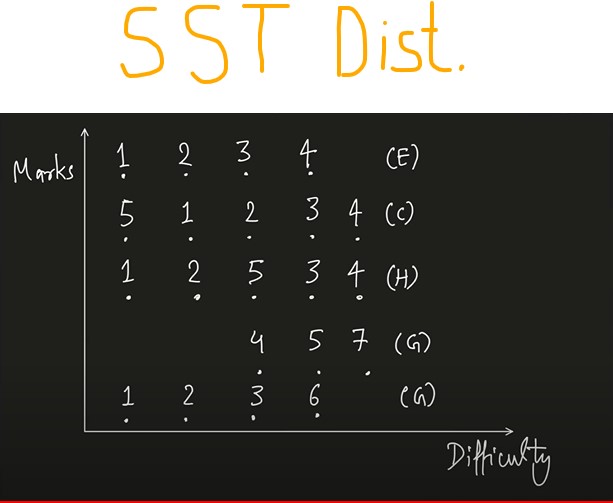 SST Dist.
Marks
1 2 3 4 (E)
5 1 2 3 4 (C)
1 2 5 3 4 (H)
4 5 7 (G)
1 2 3 6 (G)
Difficulty